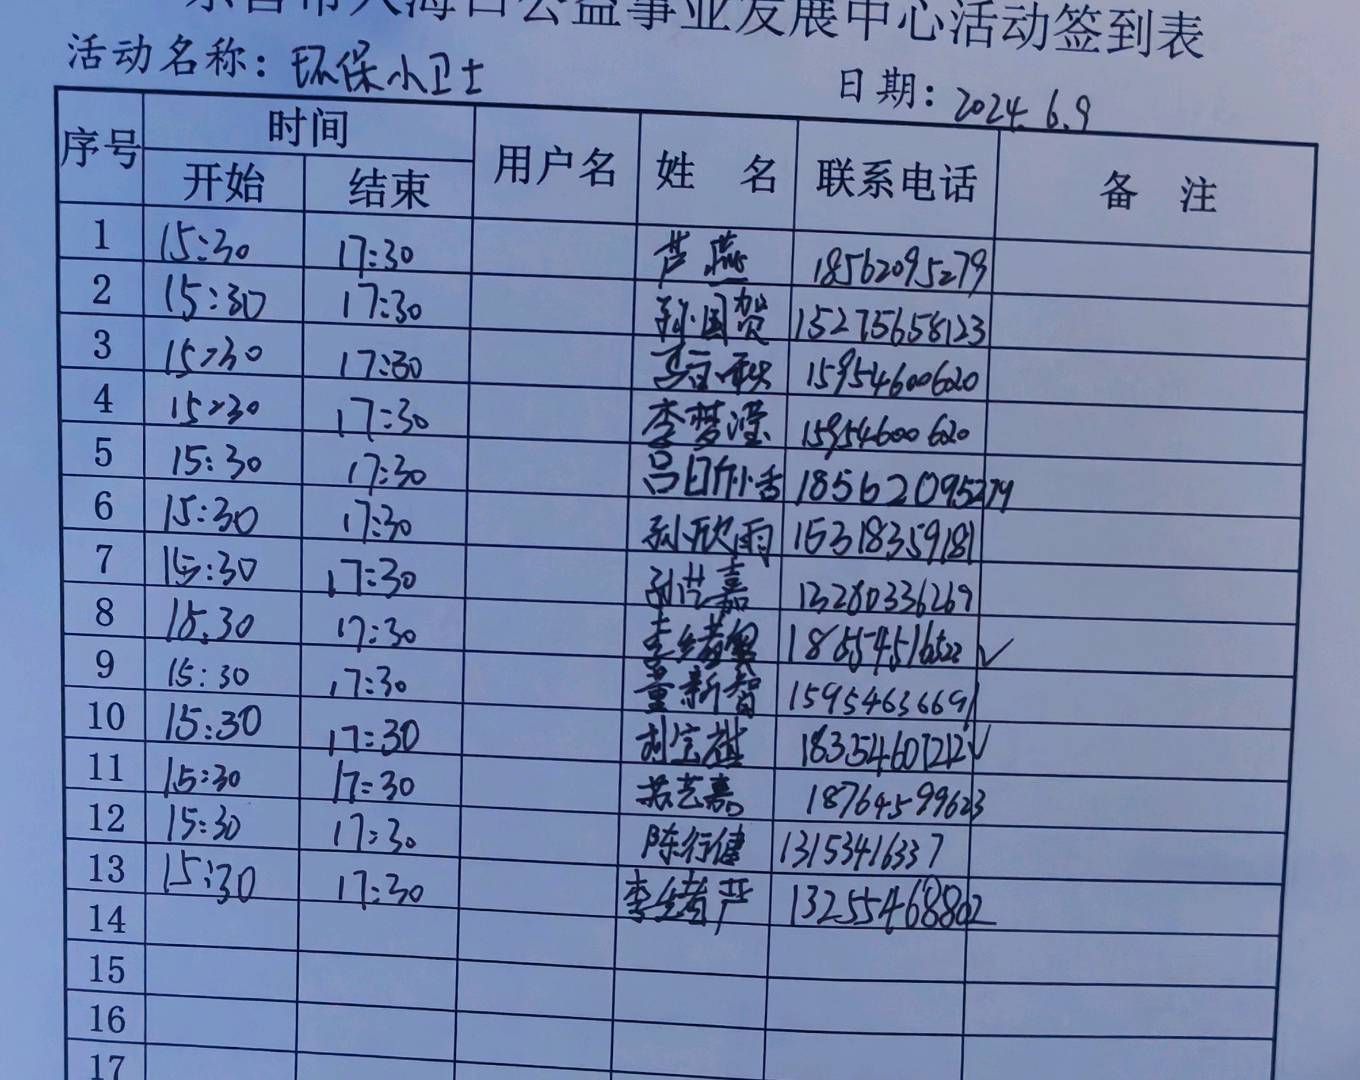 东营市入海口公益事业发展中心活动签到表
活动名称：环保小卫士 日期：2024.6.9
序号 时间 用户名 姓 名 联系电话 备 注
开始 结束
1 15:30 17:30 芦燕 18562095279
2 15:30 17:30 孙国贺 15275658123
3 15:30 17:30 15954600620
4 15:30 17:30 李梦滢 15954600620
5 15:30 17:30 18562095279
6 15:30 17:30 孙欣雨 15318359181
7 15:30 17:30 孙艺嘉 13280336269
8 15:30 17:30 ✓
9 15:30 17:30 董新智 15954636691
10 15:30 17:30 刘宝祺 18354607212 ✓
11 15:30 17:30 18764599623
12 15:30 17:30 陈行健 13153416337
13 15:30 17:30 李绪严 13255468802
14
15
16
17